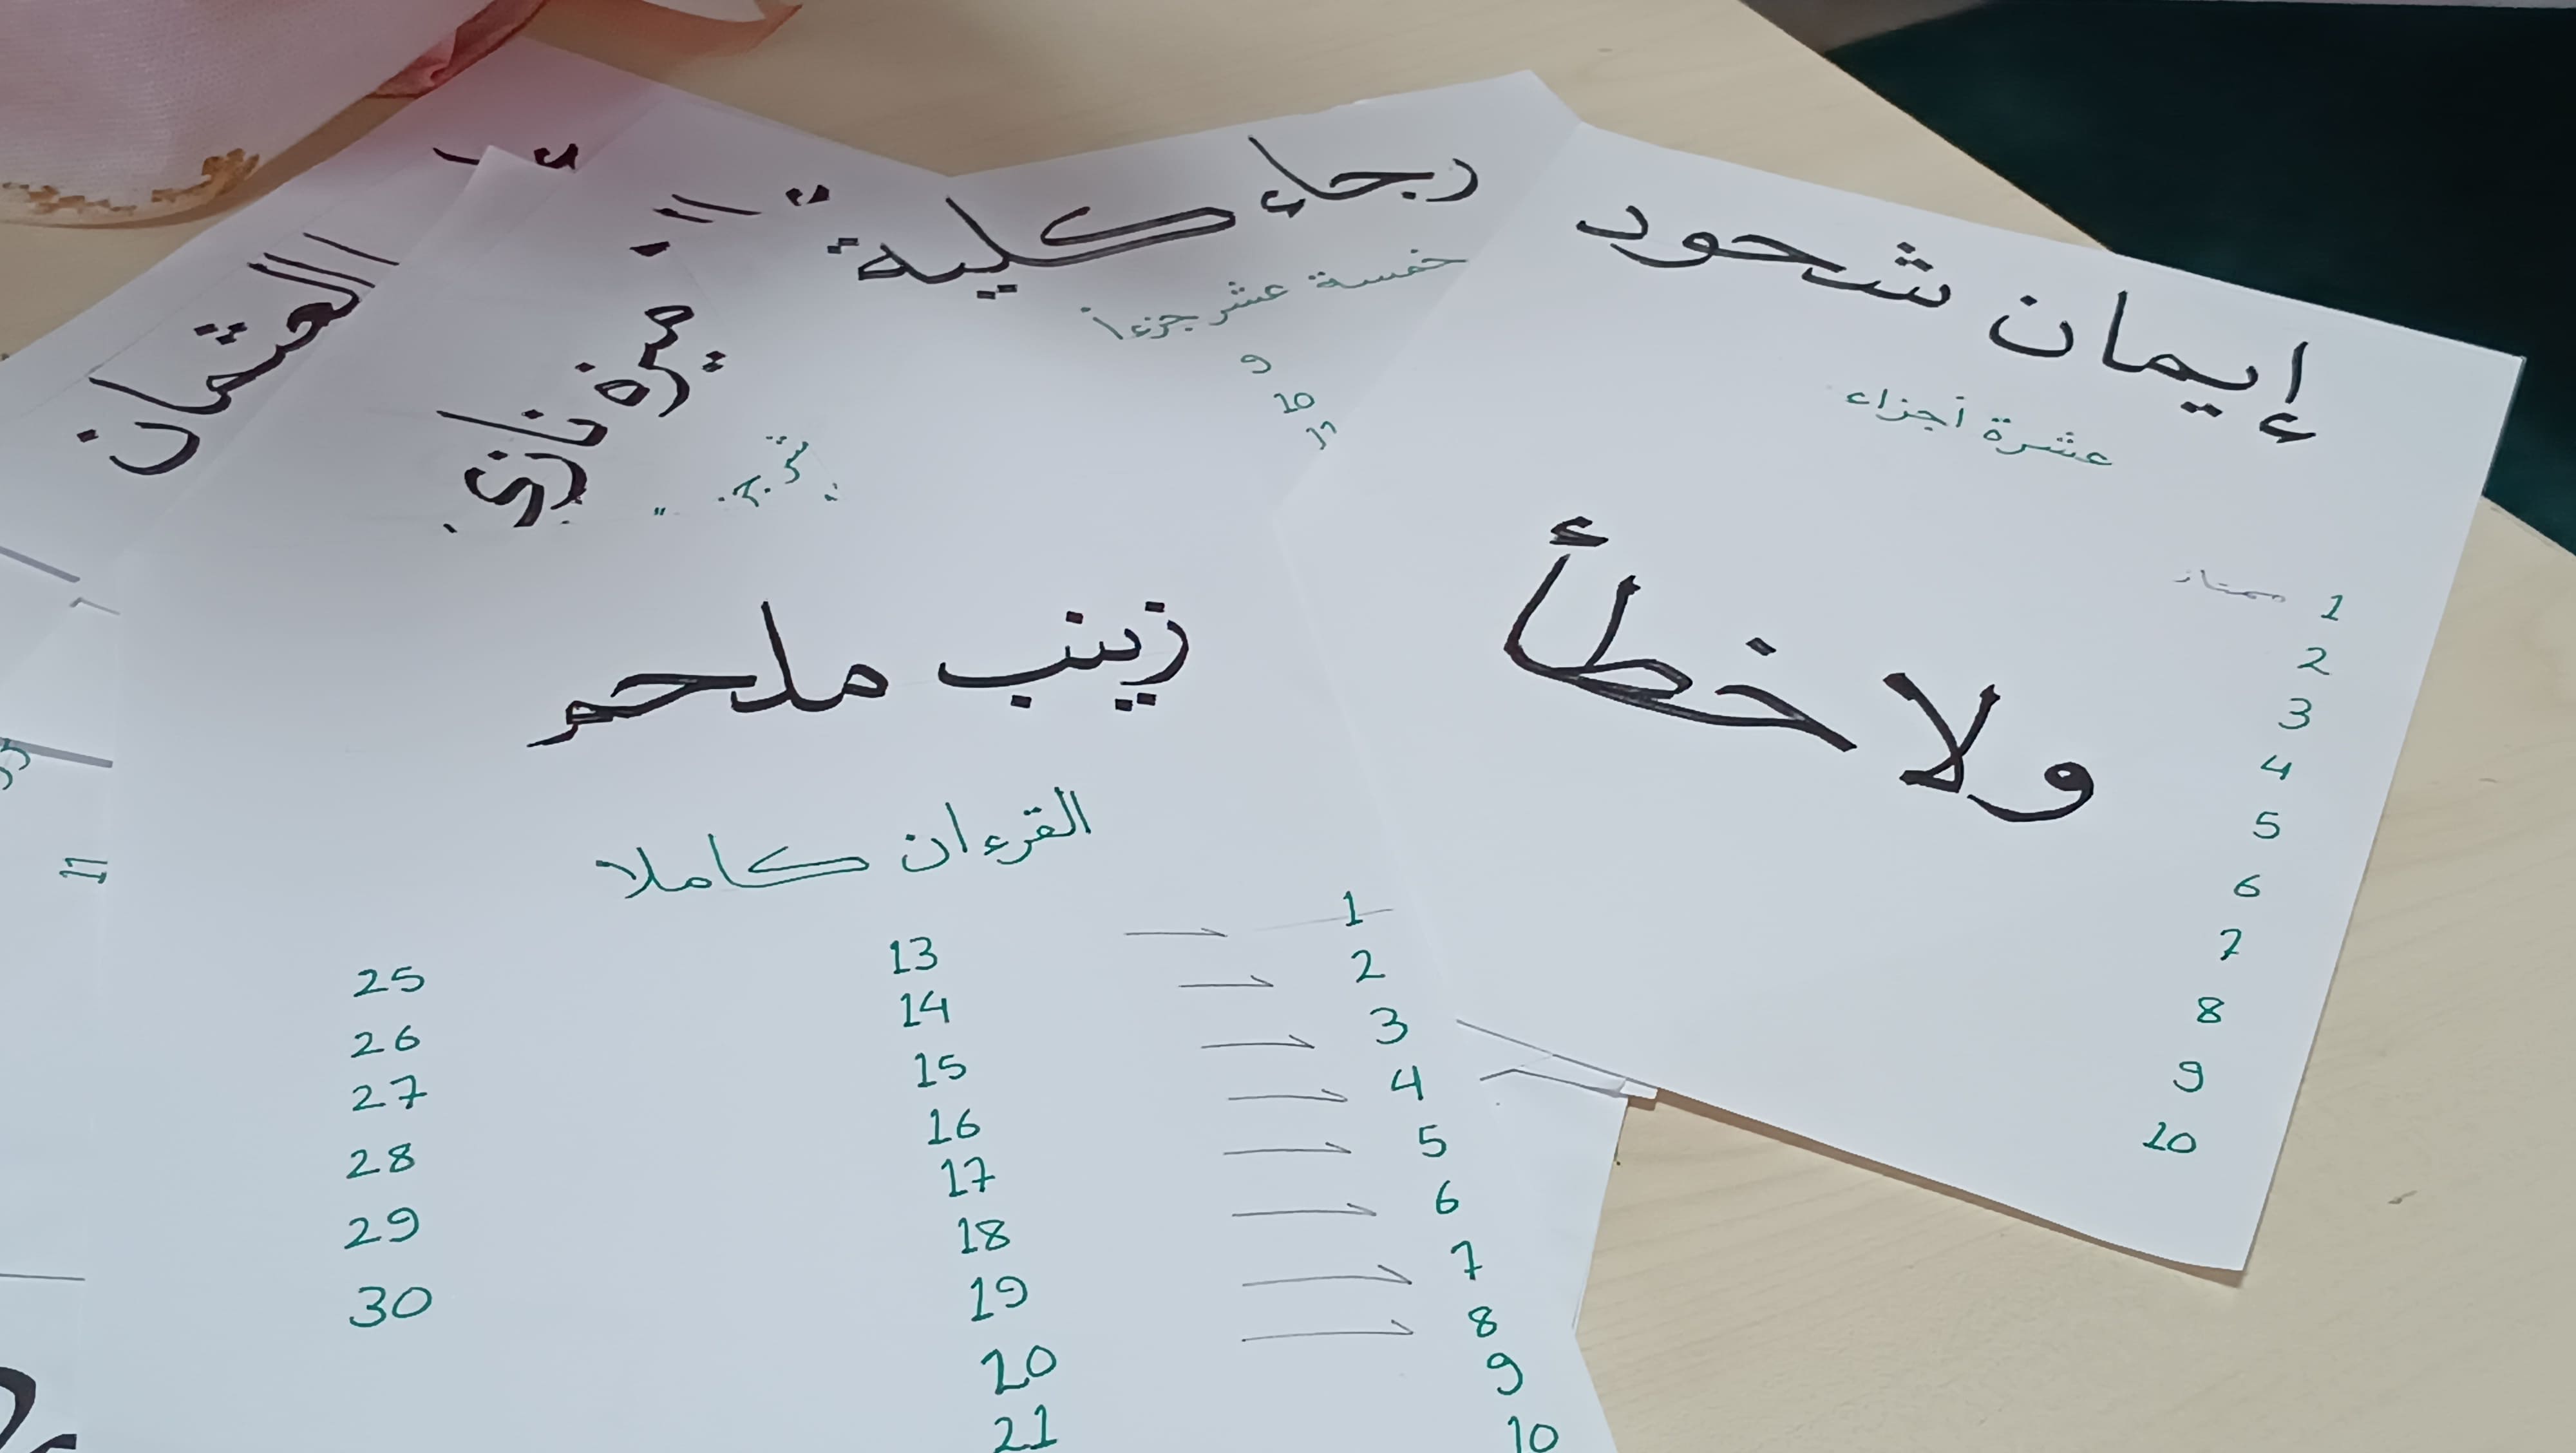 إيمان شحود
عشرة أجزاء
ولا خطأ
1 ممتاز
2
3
4
5
6
7
8
9
10
رجاء كلية
خمسة عشر جزءاً
9
10
زينب ملحم
القرءان كاملا
1
2
3
4
5
6
7
8
9
10
13
14
15
16
17
18
19
20
21
25
26
27
28
29
30